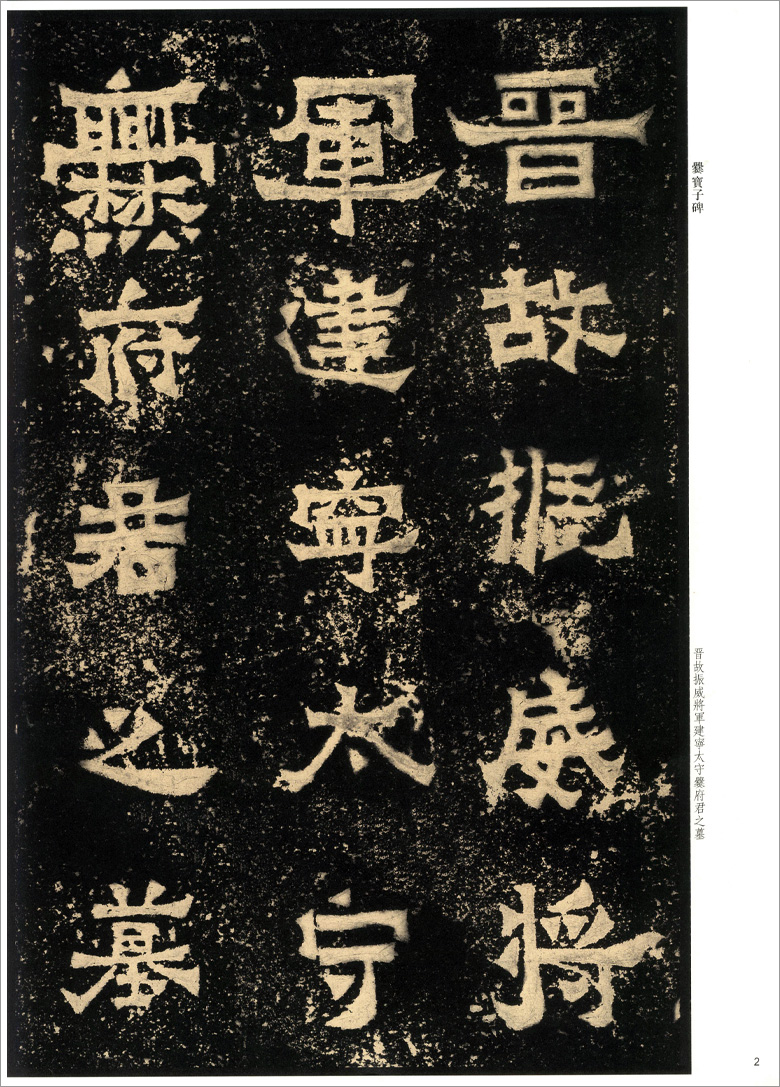 爨寶子碑
晋故振威將
軍建寧太守
爨府君之墓
晋故振威將軍建寧太守爨府君之墓
2